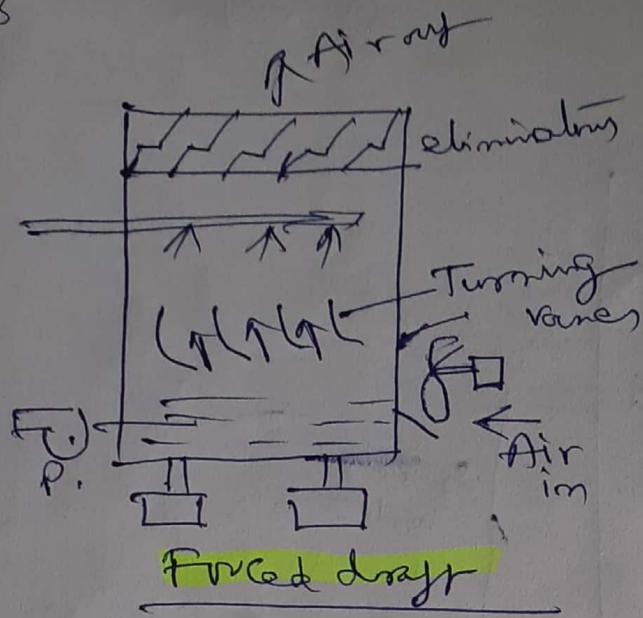 Air out
eliminators
Turning
vanes
Air
in
P.
Forced draft